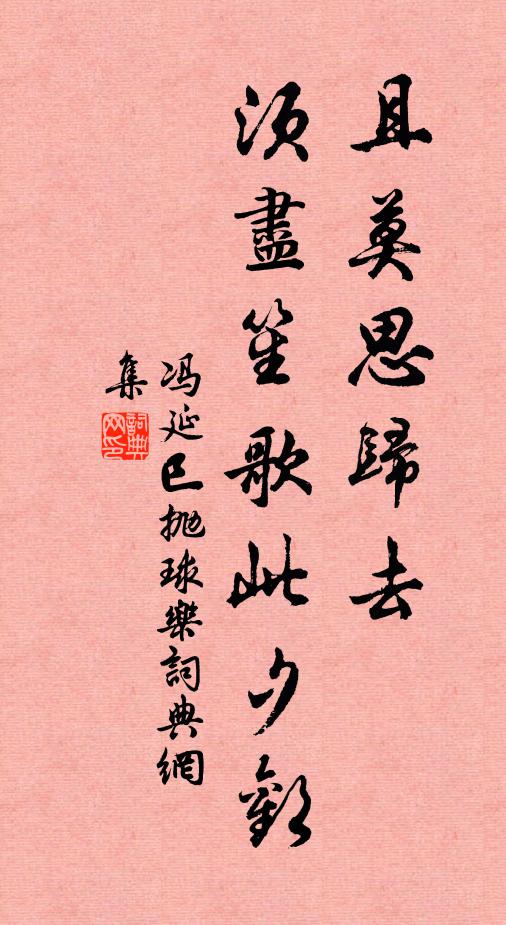 且莫思歸去
須盡笙歌此夕歡
冯延巳抛球樂詞典網
集
詞典網印